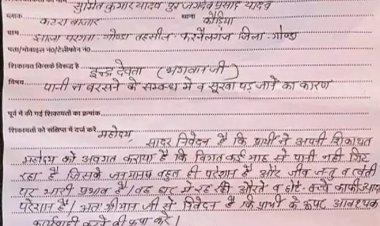 सुमित कुमार यादव पुत्र जगदेव प्रसाद यादव
ब्लाक कटरा बाजार थाना कौड़िया
ग्राम झाला परगना गोण्डा तहसील करनैलगंज जिला गोण्डा
पता/मोबाइल न0/टेलीफोन न0
शिकायत किसके विरूद्ध है इन्द्र देवता (भगवान जी)
विषय पानी न बरसने के सम्बन्ध में व सूखा पड़ जाने का कारण
पूर्व में की गई शिकायतों का क्रमांक
शिकायतों को संक्षिप्त में दर्ज करें महोदय,
सादर निवेदन है कि प्रार्थी ने अपनी शिकायत
महोदय को अवगत कराया है कि विगत कई माह से पानी नहीं गिर
रहा है जिससे जनमानस बहुत ही परेशान है और जीव जन्तु व खेती
पर भारी प्रभाव है/ घर में रह रही औरते व छोटे बच्चे काफी
परेशान है/ अतः श्रीमान जी से निवेदन है कि प्रार्थी के ऊपर आवश्यक
कार्यवाही करने की कृपा करें।